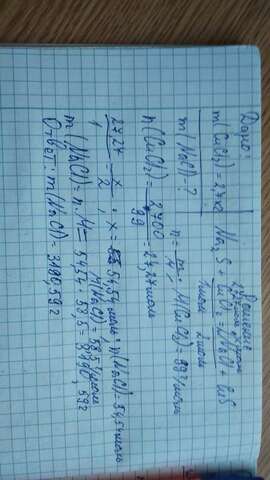 Дано:
m(CuCl₂) = 27кг
m(NaCl) - ?
Решение
27,27моль
Na₂S + CuCl₂ = 2NaCl + CuS
1моль 2моль
n = m/M; M(CuCl₂) = 99г/моль
n(CuCl₂) = 2700/99 = 27,27моль
27,27/1 = x/2; x = 54,54моль; n(NaCl) = 54,54моль
M(NaCl) = 58,5г/моль
m(NaCl) = n·M = 54,54·58,5 = 3190,59г
Ответ: m(NaCl) = 3190,59г